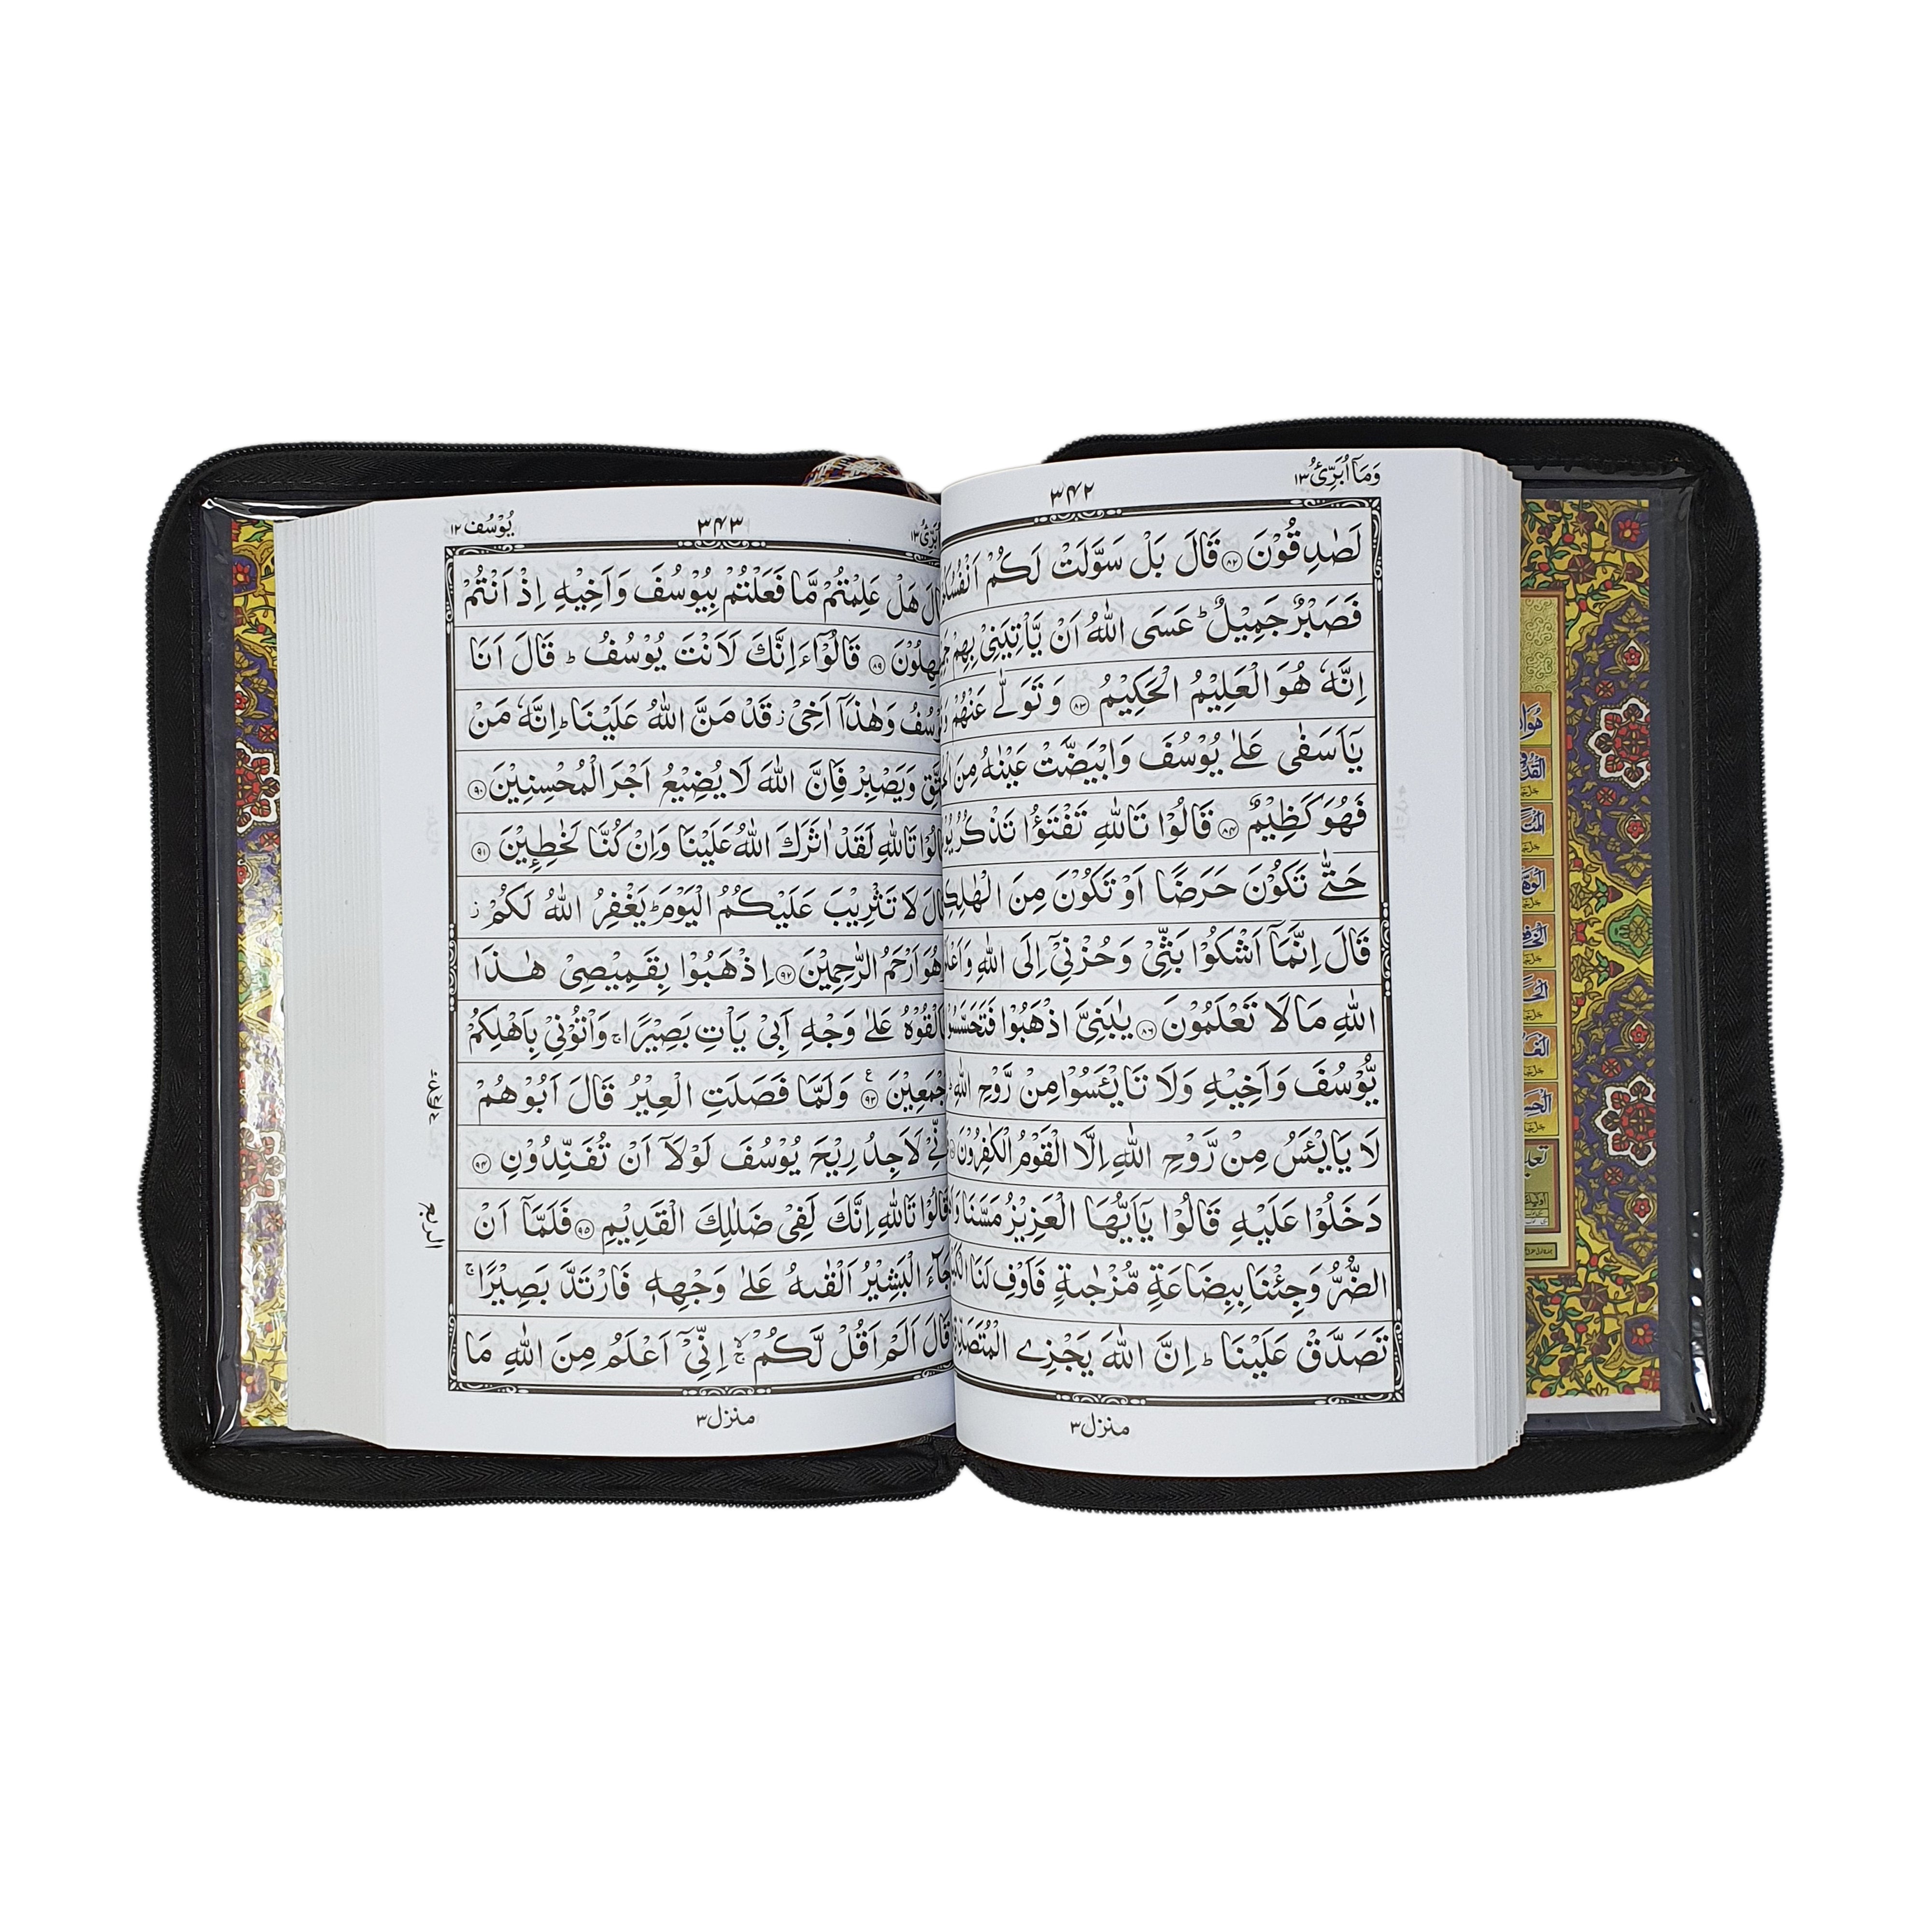 وَمَآ اُبَرِّئُ ۱۳
۳۴۲
لَصٰدِقُوْنَ ﴿۸۲﴾ قَالَ بَلْ سَوَّلَتْ لَكُمْ
فَصَبْرٌ جَمِيْلٌ ؕ عَسَى اللّٰهُ اَنْ يَّاْتِيَنِيْ بِهِمْ
اِنَّهٗ هُوَ الْعَلِيْمُ الْحَكِيْمُ ﴿۸۳﴾ وَتَوَلّٰى عَنْهُمْ
يٰۤاَسَفٰى عَلٰى يُوْسُفَ وَابْيَضَّتْ عَيْنٰهُ مِنَ
فَهُوَ كَظِيْمٌ ﴿۸۴﴾ قَالُوْا تَاللّٰهِ تَفْتَؤُا تَذْكُرُ
حَتّٰى تَكُوْنَ حَرَضًا اَوْ تَكُوْنَ مِنَ
قَالَ اِنَّمَاۤ اَشْكُوْا بَثِّيْ وَحُزْنِيْۤ اِلَى اللّٰهِ
اللّٰهِ مَا لَا تَعْلَمُوْنَ ﴿۸۶﴾ يٰبَنِيَّ اذْهَبُوْا
يُّوْسُفَ وَاَخِيْهِ وَلَا تَايْـَٔسُوْا مِنْ رَّوْحِ اللّٰهِ
لَا يَايْـَٔسُ مِنْ رَّوْحِ اللّٰهِ اِلَّا الْقَوْمُ الْكٰفِرُوْنَ
دَخَلُوْا عَلَيْهِ قَالُوْا يٰۤاَيُّهَا الْعَزِيْزُ مَسَّنَا
الضُّرُّ وَجِئْنَا بِبِضَاعَةٍ مُّزْجٰىةٍ فَاَوْفِ لَنَا
تَصَدَّقْ عَلَيْنَا ؕ اِنَّ اللّٰهَ يَجْزِى
منزل ۳
۳۴۳
يُوْسُف ۱۲
هَلْ عَلِمْتُمْ مَّا فَعَلْتُمْ بِيُوْسُفَ وَاَخِيْهِ اِذْ اَنْتُمْ
﴿۸۹﴾ قَالُوْۤا ءَاِنَّكَ لَاَنْتَ يُوْسُفُ ؕ قَالَ اَنَا
وَهٰذَاۤ اَخِيْ ز قَدْ مَنَّ اللّٰهُ عَلَيْنَا ؕ اِنَّهٗ مَنْ
وَيَصْبِرْ فَاِنَّ اللّٰهَ لَا يُضِيْعُ اَجْرَ الْمُحْسِنِيْنَ ﴿۹۰﴾
تَاللّٰهِ لَقَدْ اٰثَرَكَ اللّٰهُ عَلَيْنَا وَاِنْ كُنَّا لَخٰطِـِٕيْنَ ﴿۹۱﴾
لَا تَثْرِيْبَ عَلَيْكُمُ الْيَوْمَ ؕ يَغْفِرُ اللّٰهُ لَكُمْ ز
هُوَ اَرْحَمُ الرّٰحِمِيْنَ ﴿۹۲﴾ اِذْهَبُوْا بِقَمِيْصِيْ هٰذَا
فَاَلْقُوْهُ عَلٰى وَجْهِ اَبِيْ يَاْتِ بَصِيْرًا ۚ وَاْتُوْنِيْ بِاَهْلِكُمْ
﴿۹۳﴾ وَلَمَّا فَصَلَتِ الْعِيْرُ قَالَ اَبُوْهُمْ
لَاَجِدُ رِيْحَ يُوْسُفَ لَوْلَاۤ اَنْ تُفَنِّدُوْنِ ﴿۹۴﴾
قَالُوْا تَاللّٰهِ اِنَّكَ لَفِيْ ضَلٰلِكَ الْقَدِيْمِ ﴿۹۵﴾ فَلَمَّاۤ اَنْ
جَآءَ الْبَشِيْرُ اَلْقٰىهُ عَلٰى وَجْهِهٖ فَارْتَدَّ بَصِيْرًا ۚ
قَالَ اَلَمْ اَقُلْ لَّكُمْ ۚ اِنِّيْۤ اَعْلَمُ مِنَ اللّٰهِ مَا
الربع
منزل ۳